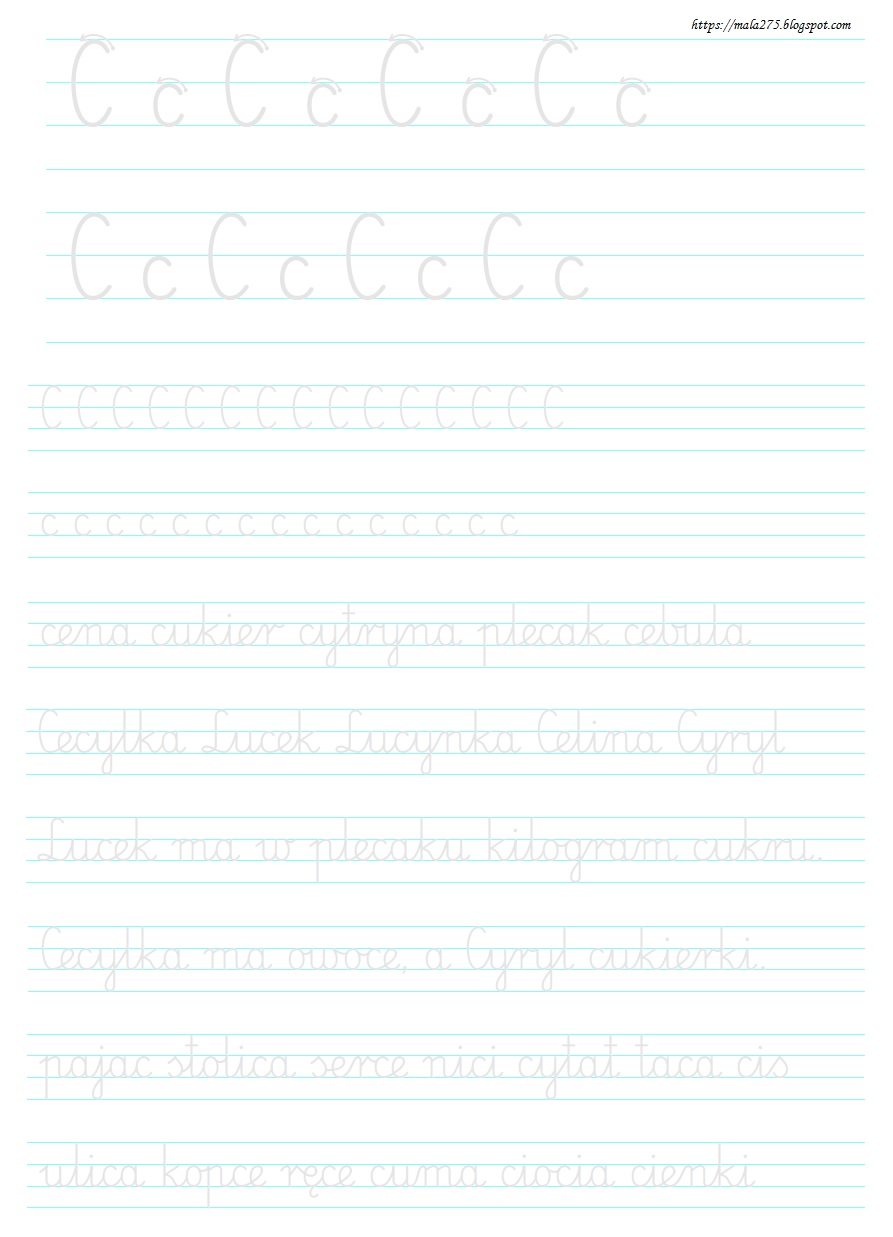 https://mala275.blogspot.com
C c C c C c C c
C c C c C c C c
C C C C C C C C C C C C C C C
c c c c c c c c c c c c c c c
cena cukier cytryna plecak cebula
Cecylka Lucek Lucynka Celina Cyryl
Lucek ma w plecaku kilogram cukru.
Cecylka ma owoce, a Cyryl cukierki.
pajac stolica serce nici cytat taca cis
ulica kopce ręce cuma ciocia cienki